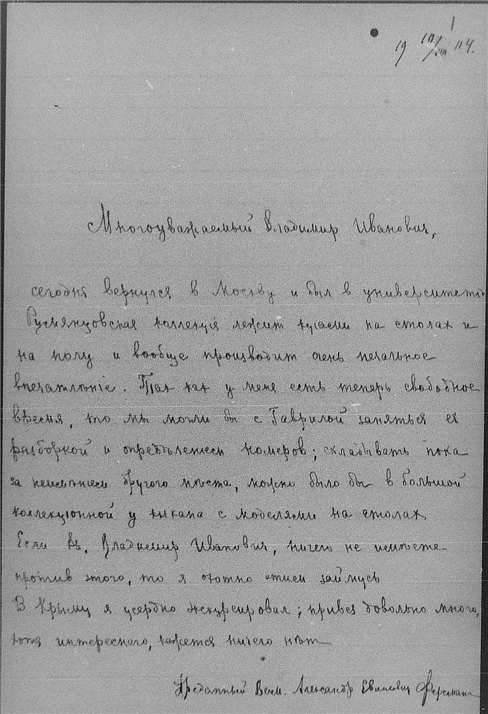 1
19
Многоуважаемый Владимир Иванович,
сегодня вернулся в Москву и был в университетѣ
Румянцовская коллекція лежит кучами на столах и
на полу и вообще производит очень печальное
впечатлѣніе. Так как у меня есть теперь свободное
время, то мы могли бы с Гаврилой заняться ея
разборкой и опредѣленіем номеров; складывать пока
за неимѣнием другого мѣста, можно было бы в большой
коллекціонной у шкапа с моделями на столах
Если Вы, Владимир Иванович, ничего не имѣете
против этого, то я охотно этим займусь
В Крыму я усердно экскурсировал; привез довольно много,
хотя интереснаго, кажется ничего нѣт
Преданный Вам. Александр Евгеньевич Ферсман